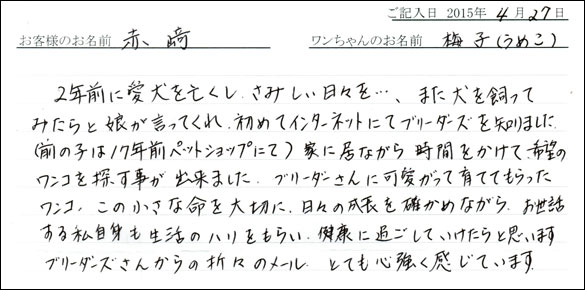 ご記入日 2015年 4月27日
お客様のお名前 赤﨑 ワンちゃんのお名前 梅子(うめこ)
2年前に愛犬を亡くし、さみしい日々を…、また犬を飼って
みたらと娘が言ってくれ、初めてインターネットにてブリーダーズを知りました
(前の子は17年前ペットショップにて)家に居ながら時間をかけて、希望の
ワンコを探す事が出来ました。ブリーダーさんに可愛がって育ててもらった
ワンコ、この小さな命を大切に、日々の成長を確かめながら、お世話
する私自身も生活のハリをもらい、健康に過ごしていけたらと思います
ブリーダーズさんからの折々のメール、とても心強く感じています。